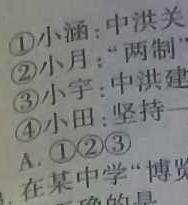 ①小涵:中洪关
②小月:“两制”
③小宇:中洪建
④小田:坚持一
A. ①②③
在某中学“博览
正确的是